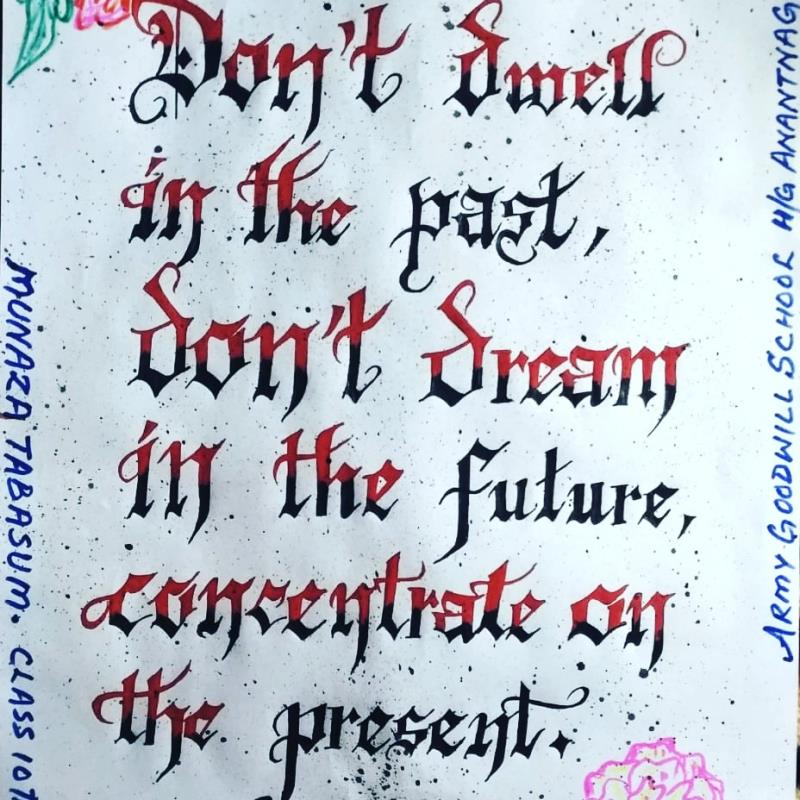 Don't dwell
in the past,
don't dream
in the future,
concentrate on
the present.
MUNAZA TABASUM. CLASS 10T
ARMY GOODWILL SCHOOL H/G ANANTNAG